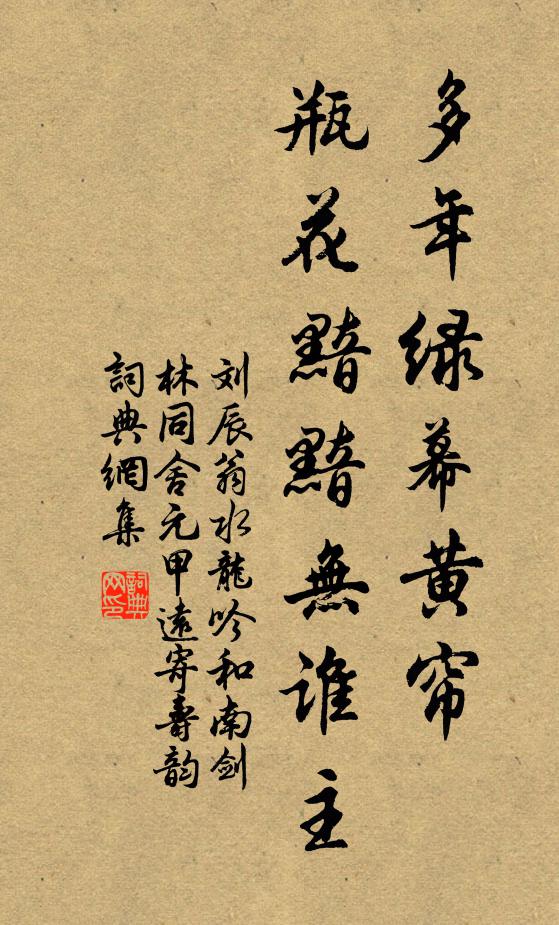 多年绿幕黄帘
瓶花黯黯無谁主
刘辰翁水龍吟和南剑
林同舍元甲遠寄壽韵
詞典網集
詞典
网印